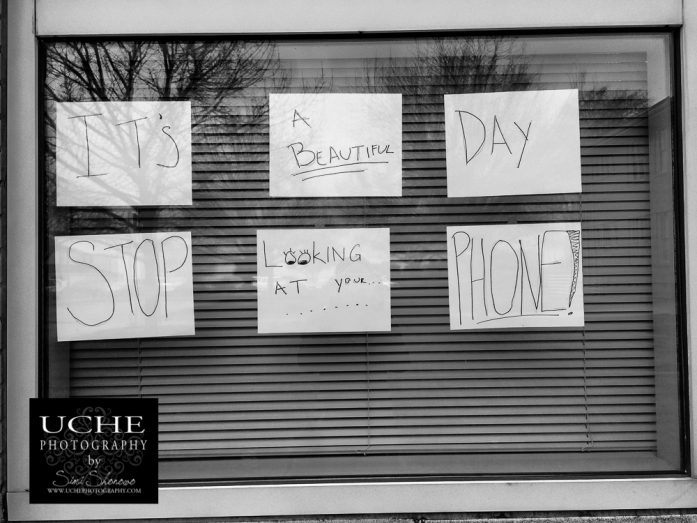 IT's
A
BEAUTIFUL
DAY
STOP
LOOKING
AT YOUR...
........
PHONE!
UCHE
PHOTOGRAPHY
by
Simi Shonowo
WWW.UCHEPHOTOGRAPHY.COM